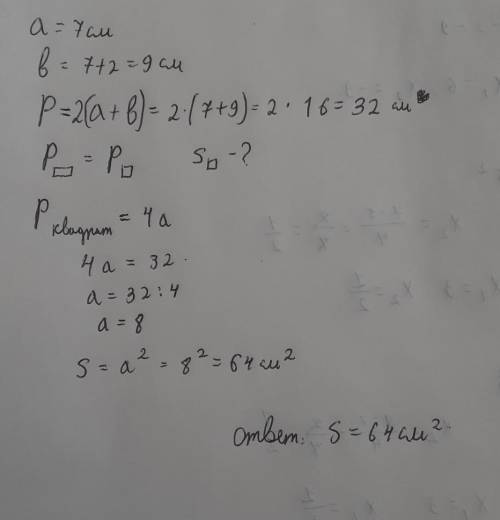 a = 7 см
в = 7+2 = 9 см
P = 2(a + в) = 2·(7+9) = 2 · 16 = 32 см
P▭ = P□ S□ - ?
P квадрат = 4a
4a = 32
a = 32 : 4
a = 8
S = a² = 8² = 64 см²
ответ: S = 64 см²